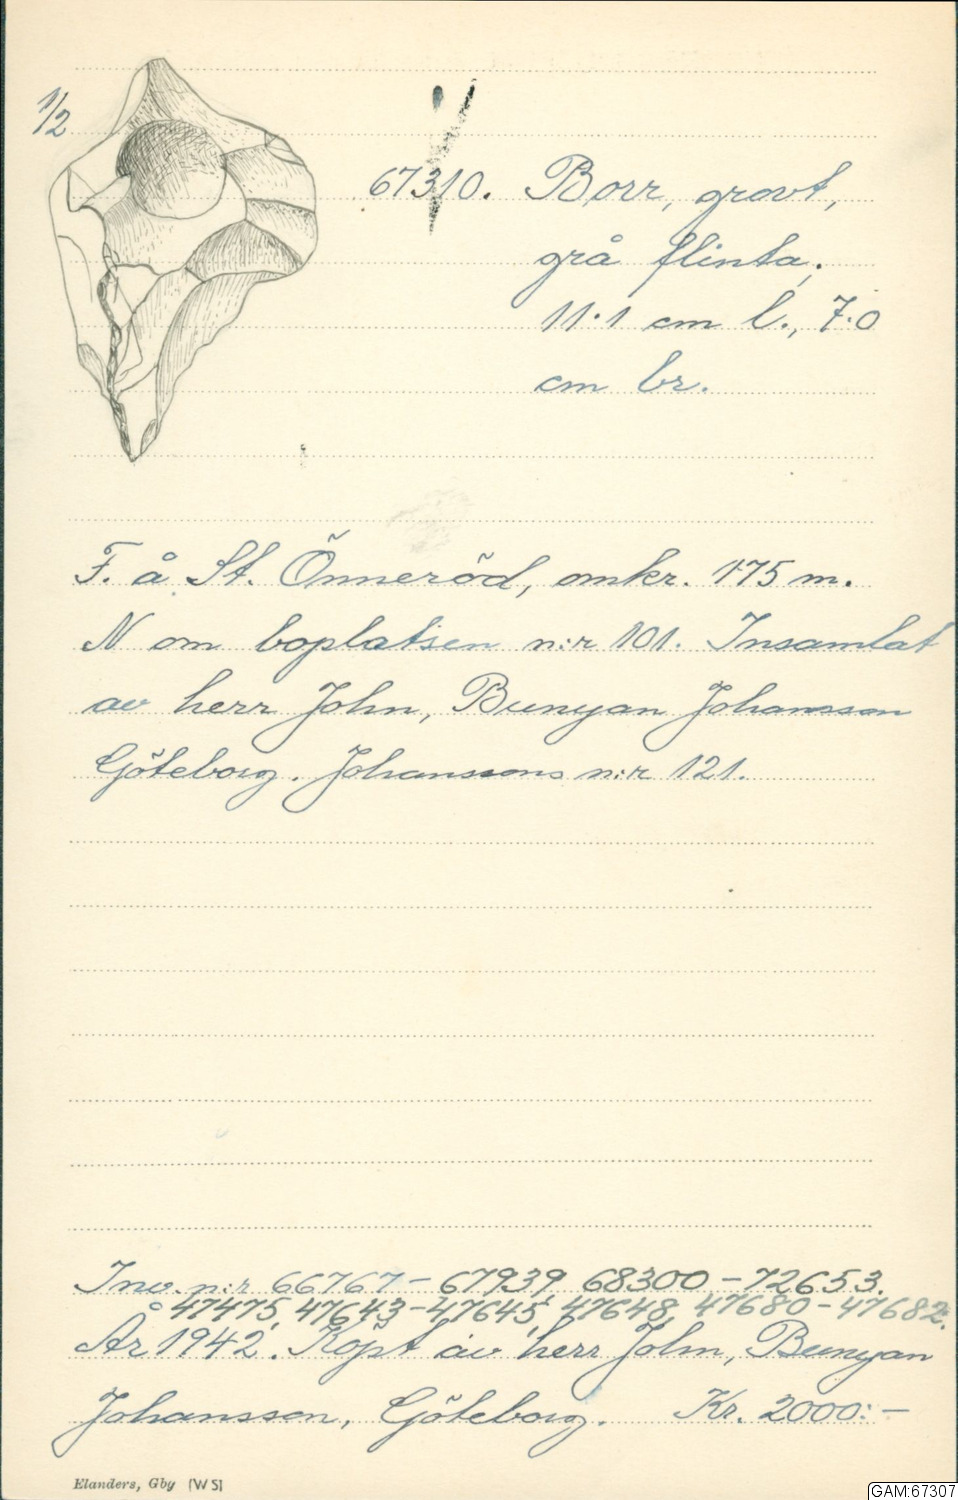 1/2
67310. Borr, grovt,
grå flinta;
11.1 cm l., 7.0
cm br.
F. å St. Önneröd, omkr. 175 m.
N om boplatsen n:r 101. Insamlat
av herr John, Bunyan Johansson
Göteborg. Johanssons n:r 121.
Inv. n:r 66767-67939, 68300-72653.
47475, 47643-47645, 47648, 47680-47682.
År 1942. Köpt av herr John, Bunyan
Johansson, Göteborg. Kr. 2000:-
Elanders, Gbg (WS)
GAM:67307